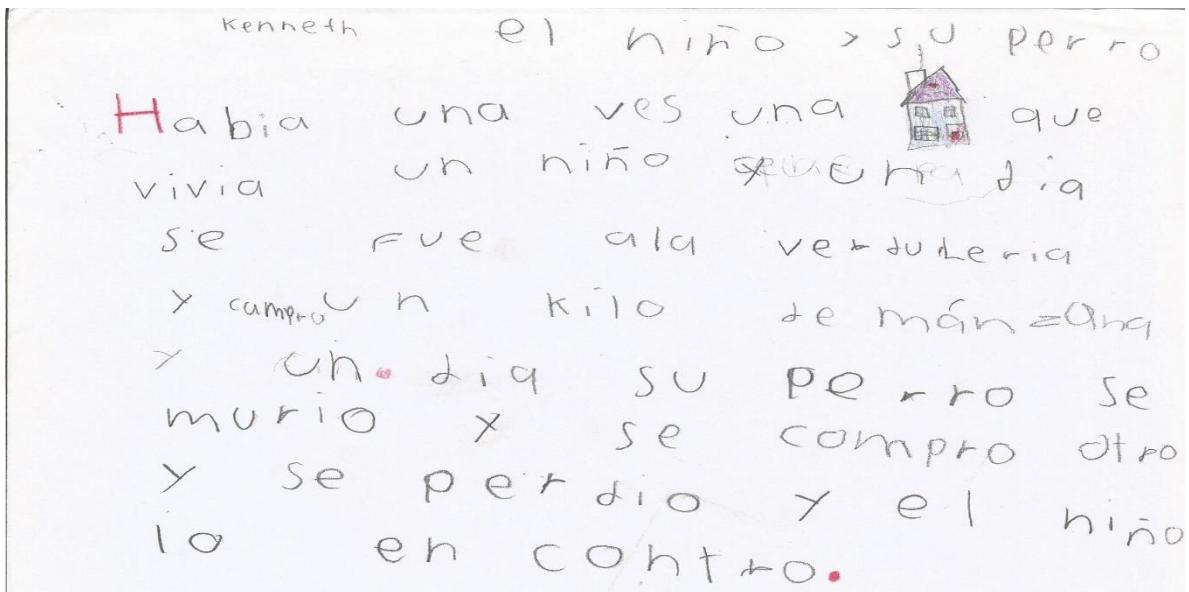 Kenneth el niño y su perro
Habia una ves una que
vivia un niño y un dia
se fue ala verduleria
y compro un kilo de mánzana
y un. dia su perro se
murio y se compro otro
y se perdio y el niño
lo en contro.